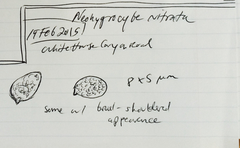 Neohygrocybe nitrata
19 FEB 2015
White Horse Canyon Road
8 x 5 µm
some w/ broad-shouldered
appearance